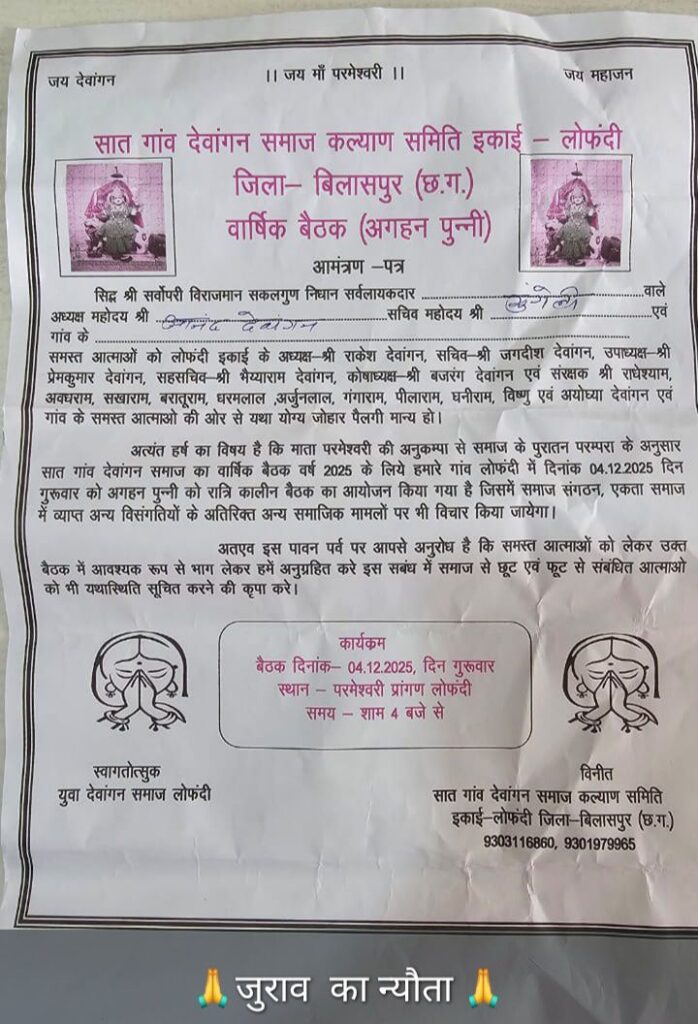 जय देवांगन
।। जय माँ परमेश्वरी ।।
जय महाजन
सात गांव देवांगन समाज कल्याण समिति इकाई – लोफंदी
जिला– बिलासपुर (छ.ग.)
वार्षिक बैठक (अगहन पुन्नी)
आमंत्रण –पत्र
सिद्ध श्री सर्वोपरी विराजमान सकलगुण निधान सर्वलायकदार मुंगेली वाले
अध्यक्ष महोदय श्री आनंद देवांगन सचिव महोदय श्री एवं
गांव के
समस्त आत्माओं को लोफंदी इकाई के अध्यक्ष–श्री राकेश देवांगन, सचिव–श्री जगदीश देवांगन, उपाध्यक्ष–श्री
प्रेमकुमार देवांगन, सहसचिव–श्री भैय्याराम देवांगन, कोषाध्यक्ष–श्री बजरंग देवांगन एवं संरक्षक श्री राधेश्याम,
अवधराम, सखाराम, बरातूराम, धरमलाल ,अर्जुनलाल, गंगाराम, पीलाराम, घनीराम, विष्णु एवं अयोध्या देवांगन एवं
गांव के समस्त आत्माओ की ओर से यथा योग्य जोहार पैलगी मान्य हो।
अत्यंत हर्ष का विषय है कि माता परमेश्वरी की अनुकम्पा से समाज के पुरातन परम्परा के अनुसार
सात गांव देवांगन समाज का वार्षिक बैठक वर्ष 2025 के लिये हमारे गांव लोफंदी में दिनांक 04.12.2025 दिन
गुरूवार को अगहन पुन्नी को रात्रि कालीन बैठक का आयोजन किया गया है जिसमें समाज संगठन, एकता समाज
में व्याप्त अन्य विसंगतियों के अतिरिक्त अन्य समाजिक मामलों पर भी विचार किया जायेगा।
अतएव इस पावन पर्व पर आपसे अनुरोध है कि समस्त आत्माओं को लेकर उक्त
बैठक में आवश्यक रूप से भाग लेकर हमें अनुग्रहित करे इस सबंध में समाज से छूट एवं फूट से संबंधित आत्माओ
को भी यथास्थिति सूचित करने की कृपा करे।
कार्यक्रम
बैठक दिनांक– 04.12.2025, दिन गुरूवार
स्थान – परमेश्वरी प्रांगण लोफंदी
समय – शाम 4 बजे से
स्वागतोत्सुक
युवा देवांगन समाज लोफंदी
विनीत
सात गांव देवांगन समाज कल्याण समिति
इकाई–लोफंदी जिला–बिलासपुर (छ.ग.)
9303116860, 9301979965
🙏 जुराव का न्यौता 🙏